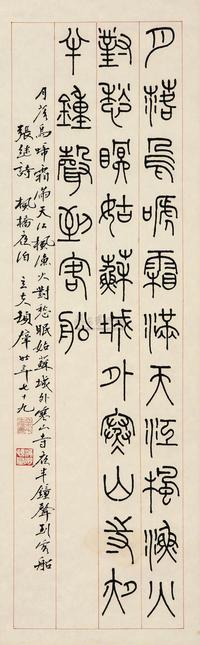 月落烏啼霜滿天江楓漁火
對愁眠姑蘇城外寒山寺夜
半鐘聲到客船
月落烏啼霜滿天江楓漁火對愁眠姑蘇城外寒山寺夜半鐘聲到客船
張継詩 楓橋夜泊 立夫 年七十九